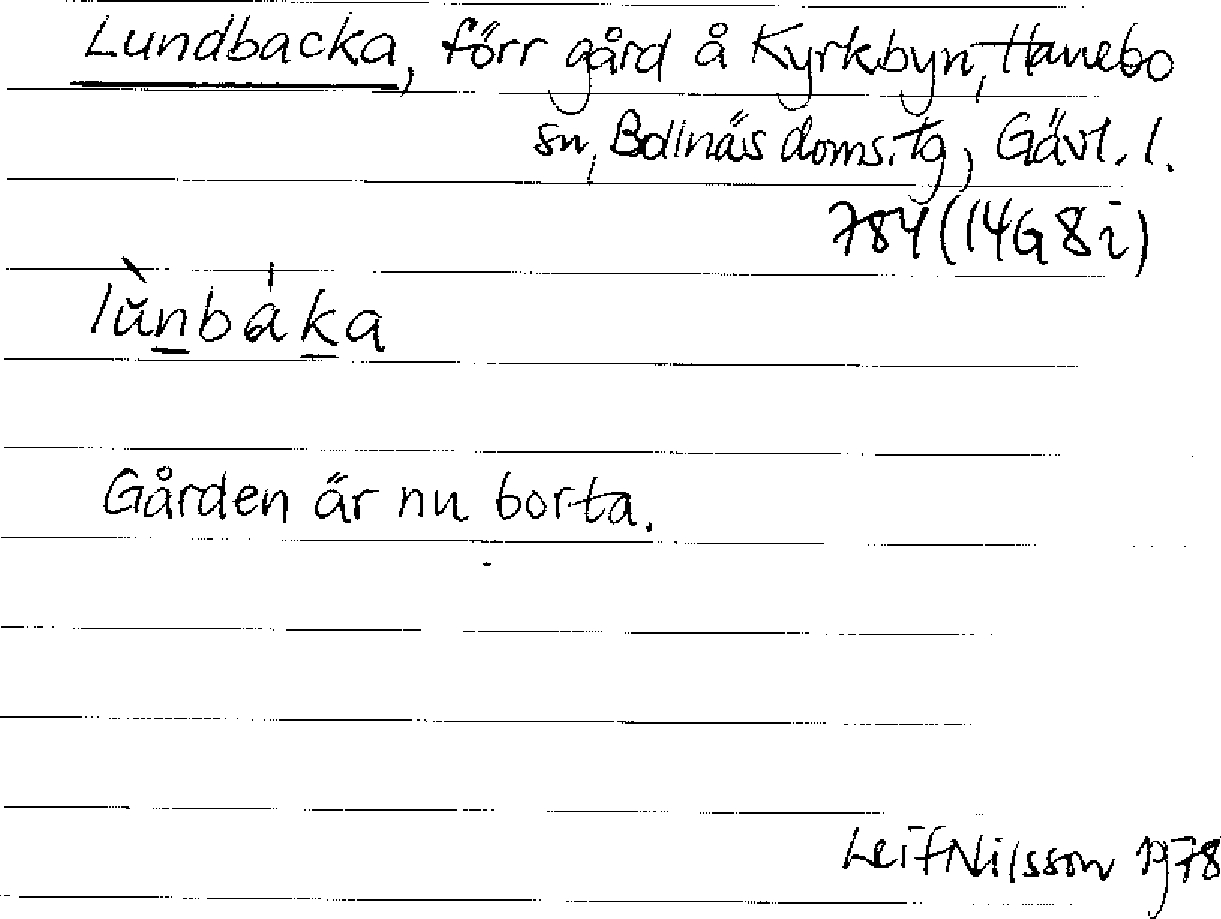 Lundbacka, förr gård å Kyrkbyn, Hanebo
sn, Bollnäs doms.tg, Gävl. l.
784 (14G 8i)
lùn̲báḵa
Gården är nu borta.
Leif Nilsson 1978